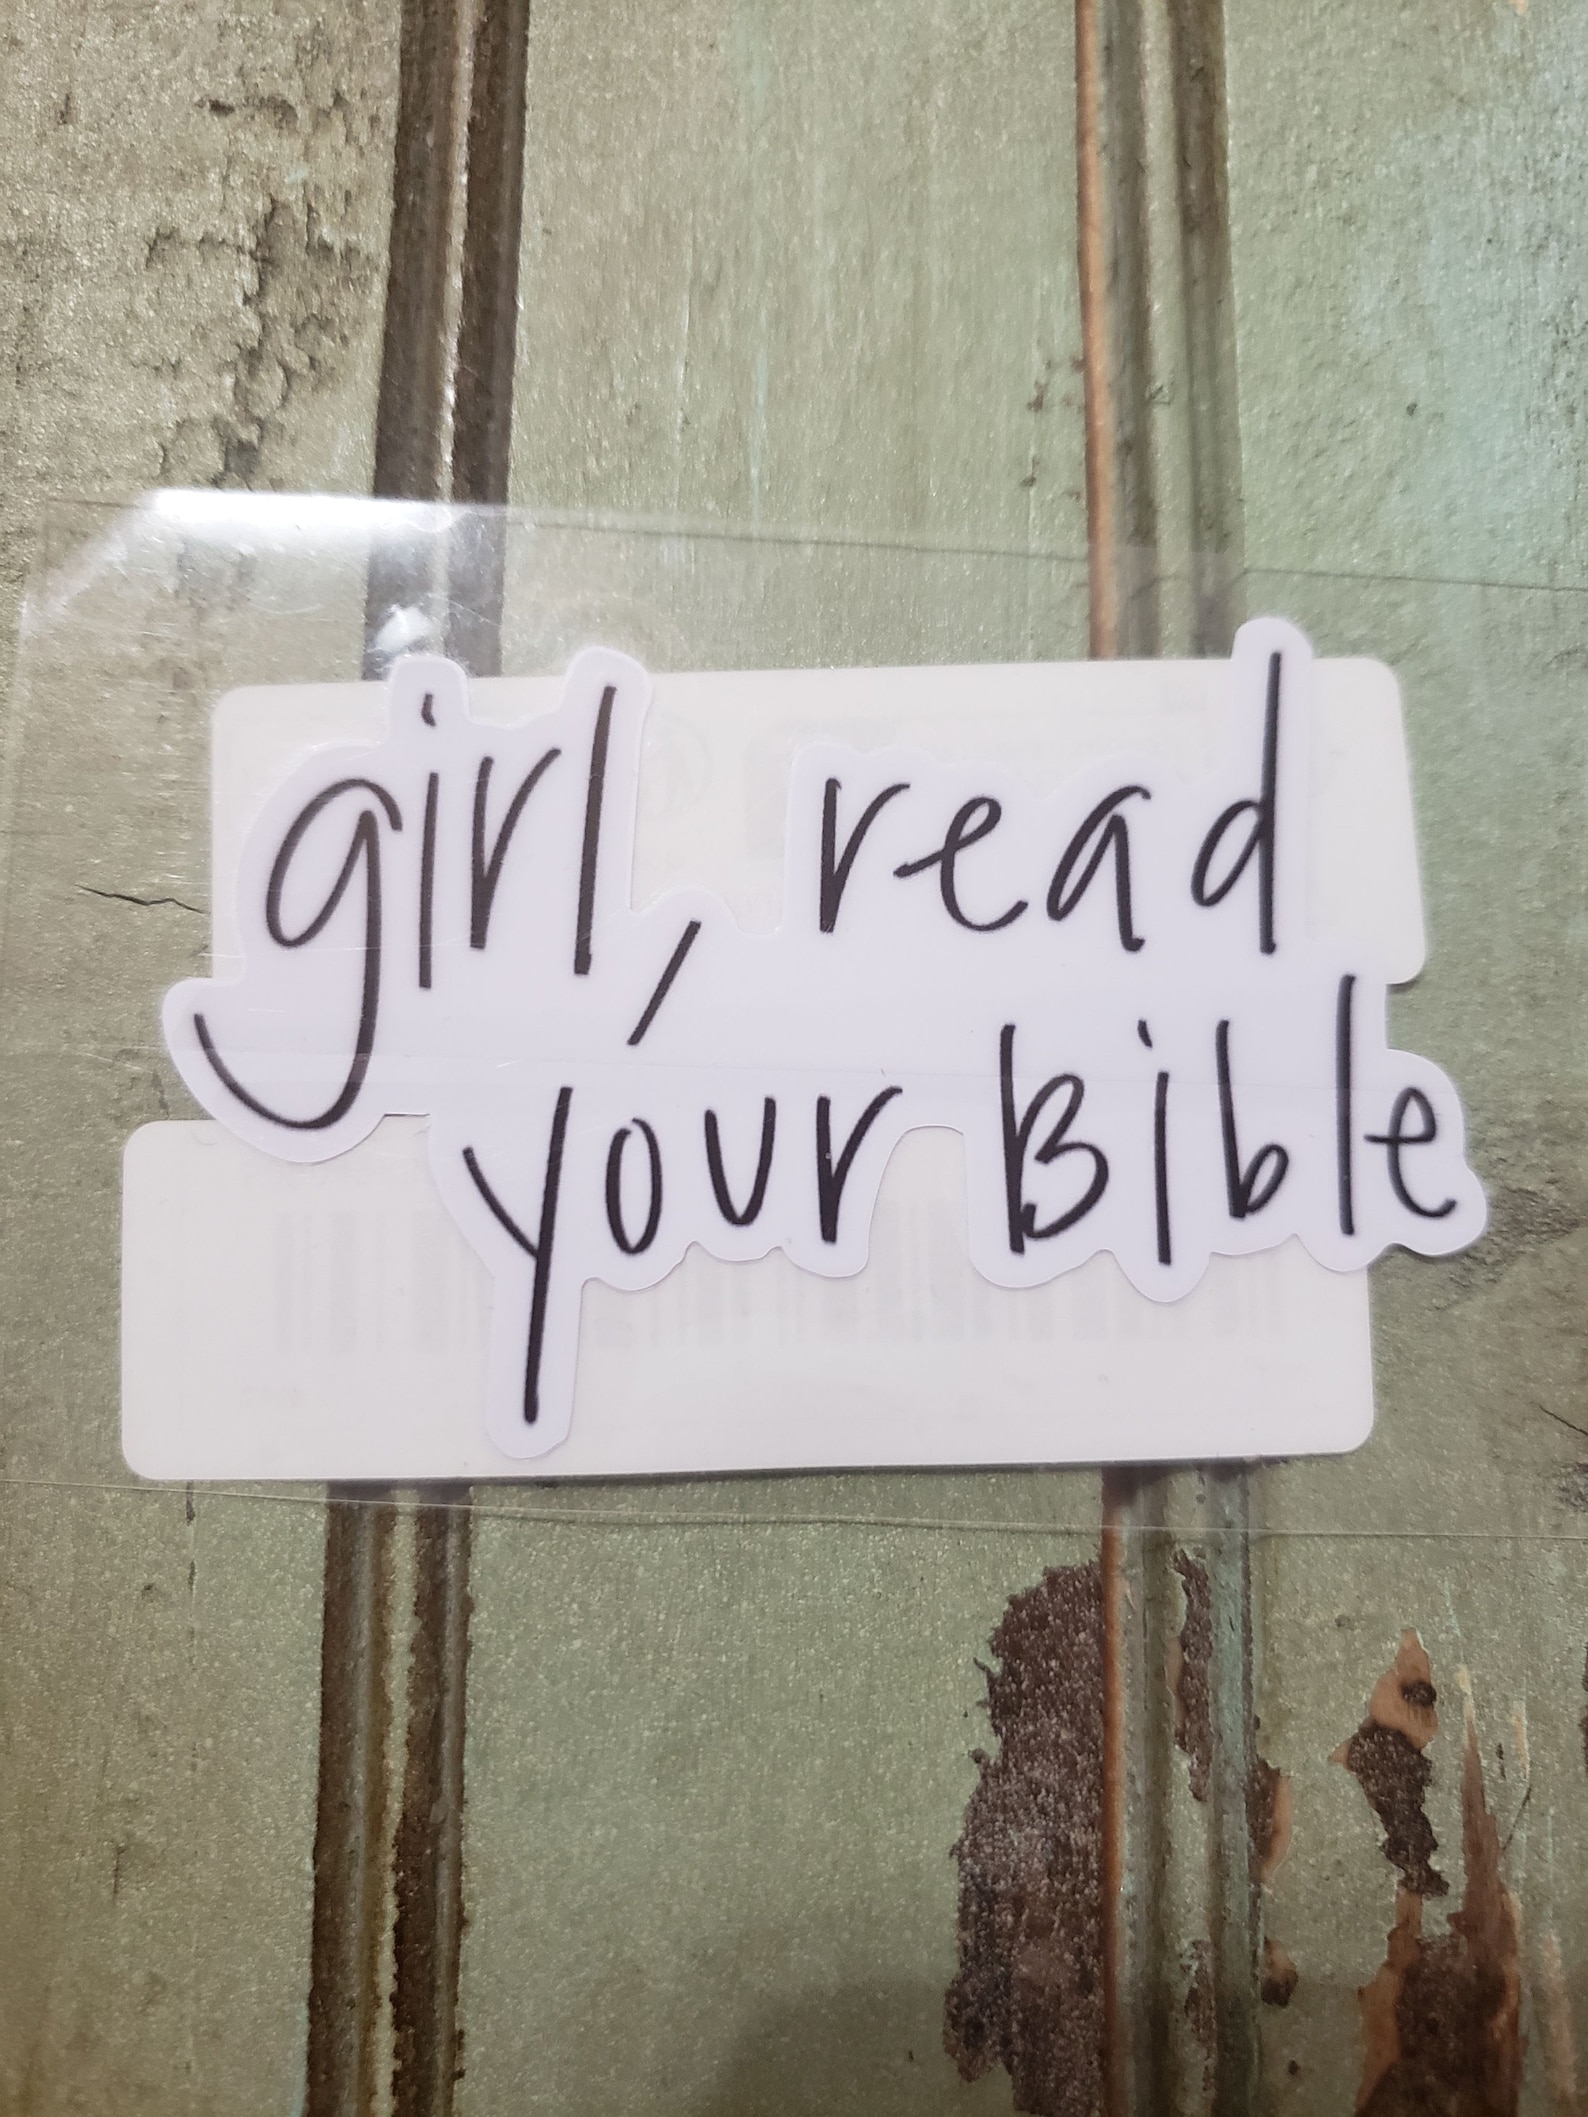 girl, read
your Bible